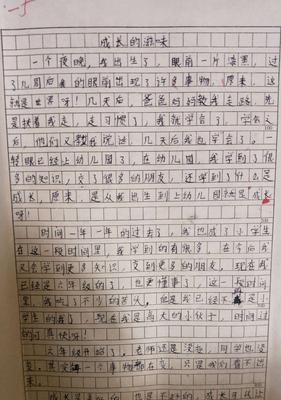 成长的滋味
一个夜晚，我出生了，眼前一片漆黑，过
了几周后我的眼前出现了许多事物，原来，这
就是世界呀！几天后，爸爸妈妈教我走路，先
是扶着我走，走习惯了，我就学会了，学会之
后，他们又教我说话，几天后我也学会了。一
转眼已经上幼儿园了，在幼儿园，我学到了很
多的知识，交了很多的朋友，还学到了什么是
成长，原来，是从我出生到上幼儿园就是成长
呀！
时间一年一年的过去了，我也成了小学生
在这一段时间里，我学到的有很多，在今后我
又会学到更多知识，交到更多的朋友，现在我
已经是六年级的了，也更懂事了，这一段时间
里，我吃了不少的苦头，但是我已经不是小
学生的我了，现在我是高大的小伙子，时间过
的可真快呀！
六年级开始了，老师还是没变，同学也没
变，其实每一个事物都在变，只是我们看不出
来。